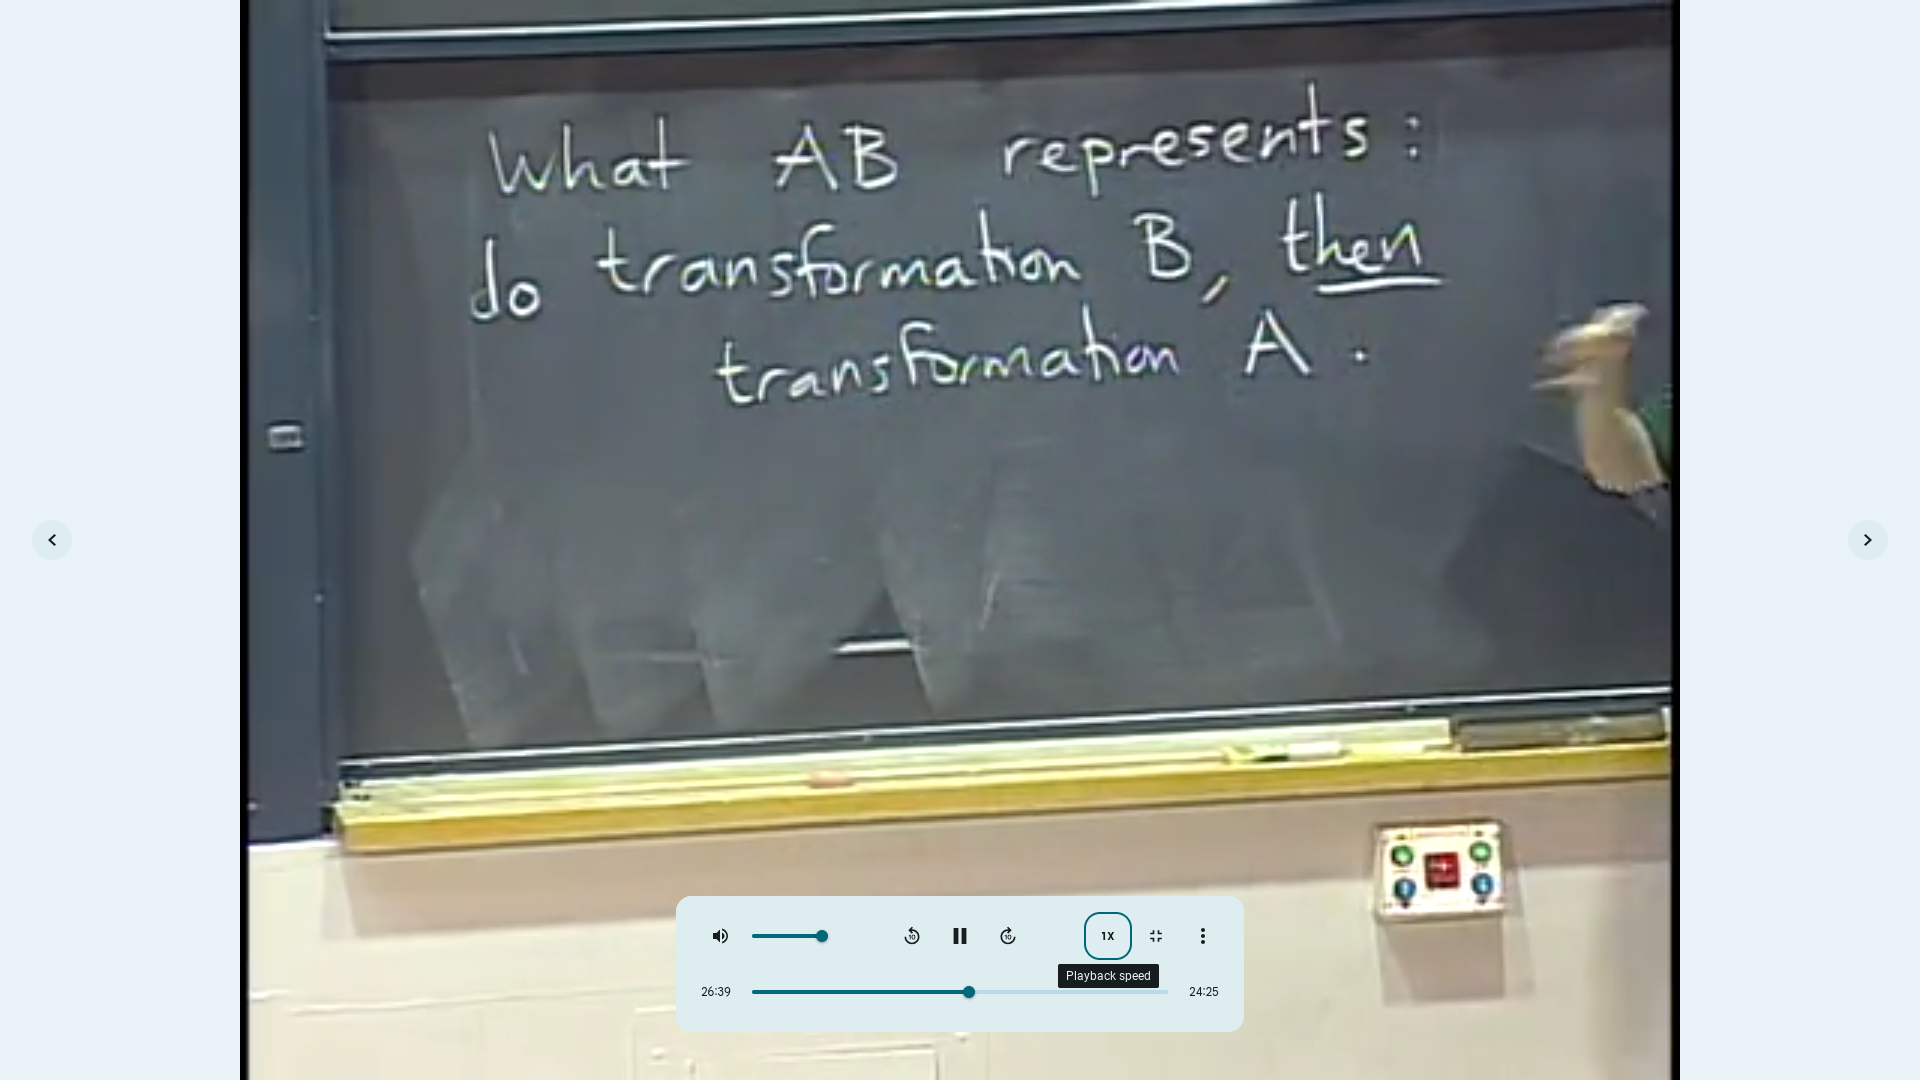 What AB represents:
do transformation B, then
transformation A.
1X
Playback speed
26:39
24:25